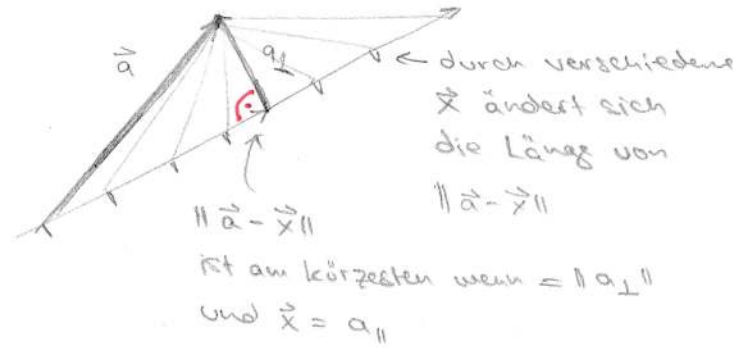 a⃗
a⊥
← durch verschiedene
x⃗ ändert sich
die Länge von
‖a⃗ - x⃗‖
‖a⃗ - x⃗‖
ist am kürzesten wenn = ‖a⊥‖
und x⃗ = a∥